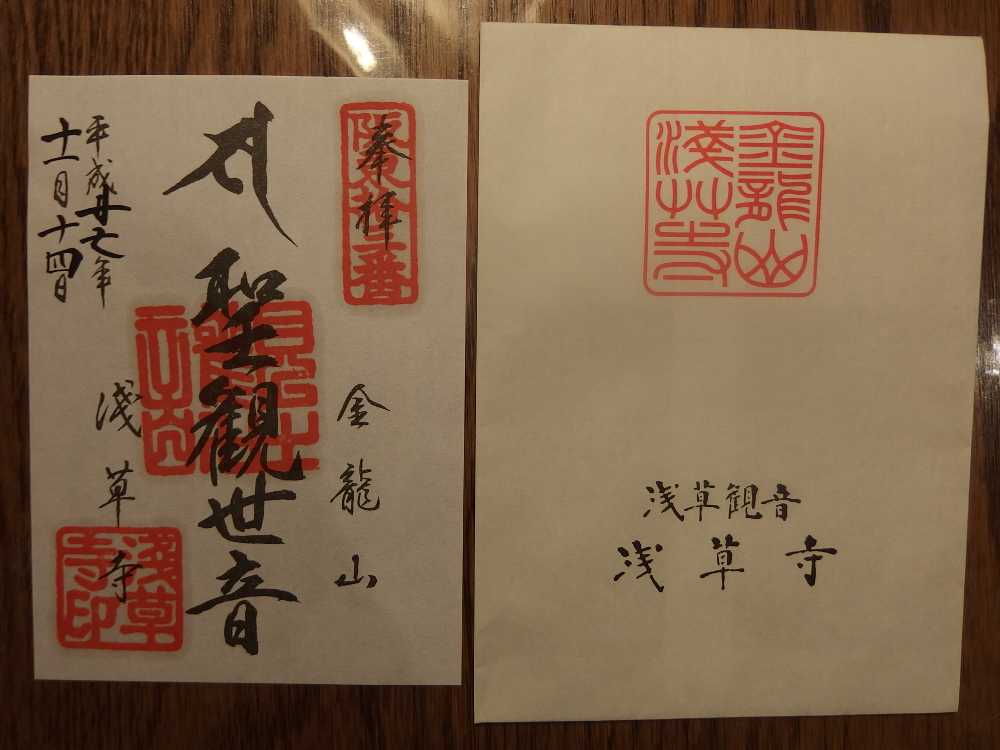 奉拝
金龍山
聖観世音
淺草寺
淺草
寺印
平成廿七年
十一月十四日
金龍山
淺草寺
浅草観音
浅草寺